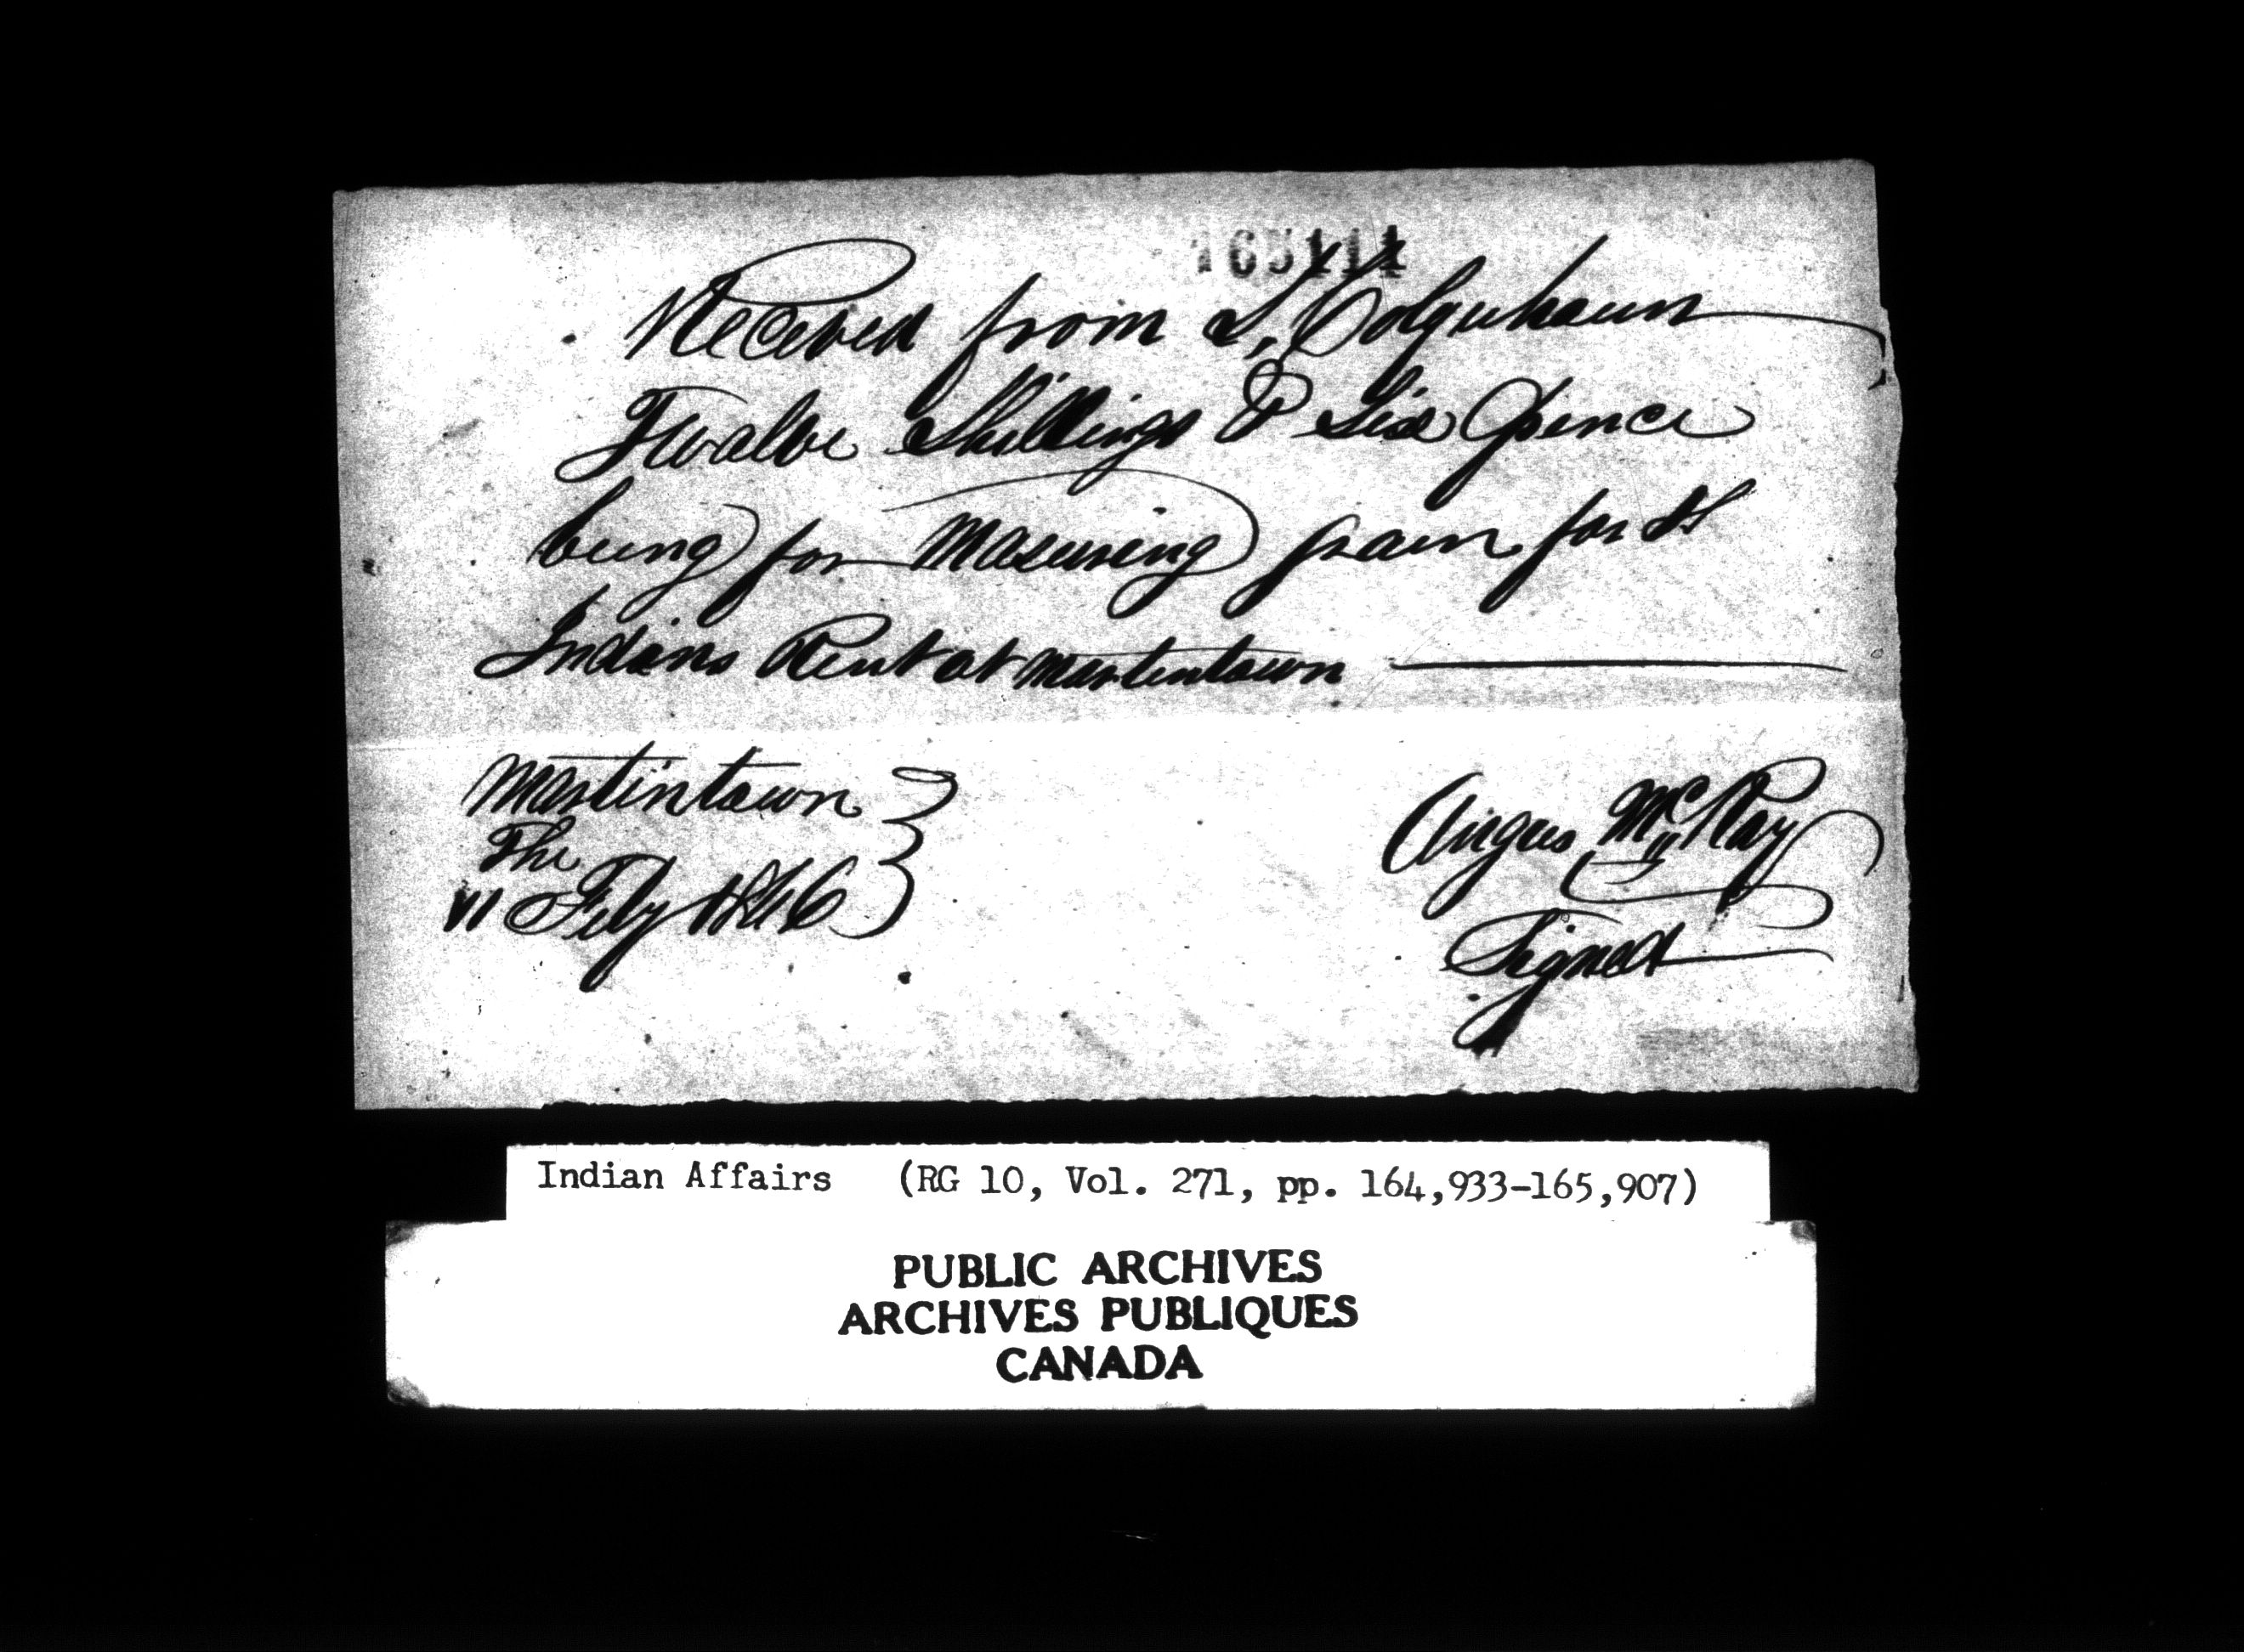 165111
Received from L, Colquhoun
Twalve Shillings & Six Pence
being for Masuring grain for St
Indians Rent at Martintown
Martintown
The
11 Feby 1846
Angus McKay
Signed
Indian Affairs (RG 10, Vol. 271, pp. 164,933-165,907)
PUBLIC ARCHIVES
ARCHIVES PUBLIQUES
CANADA